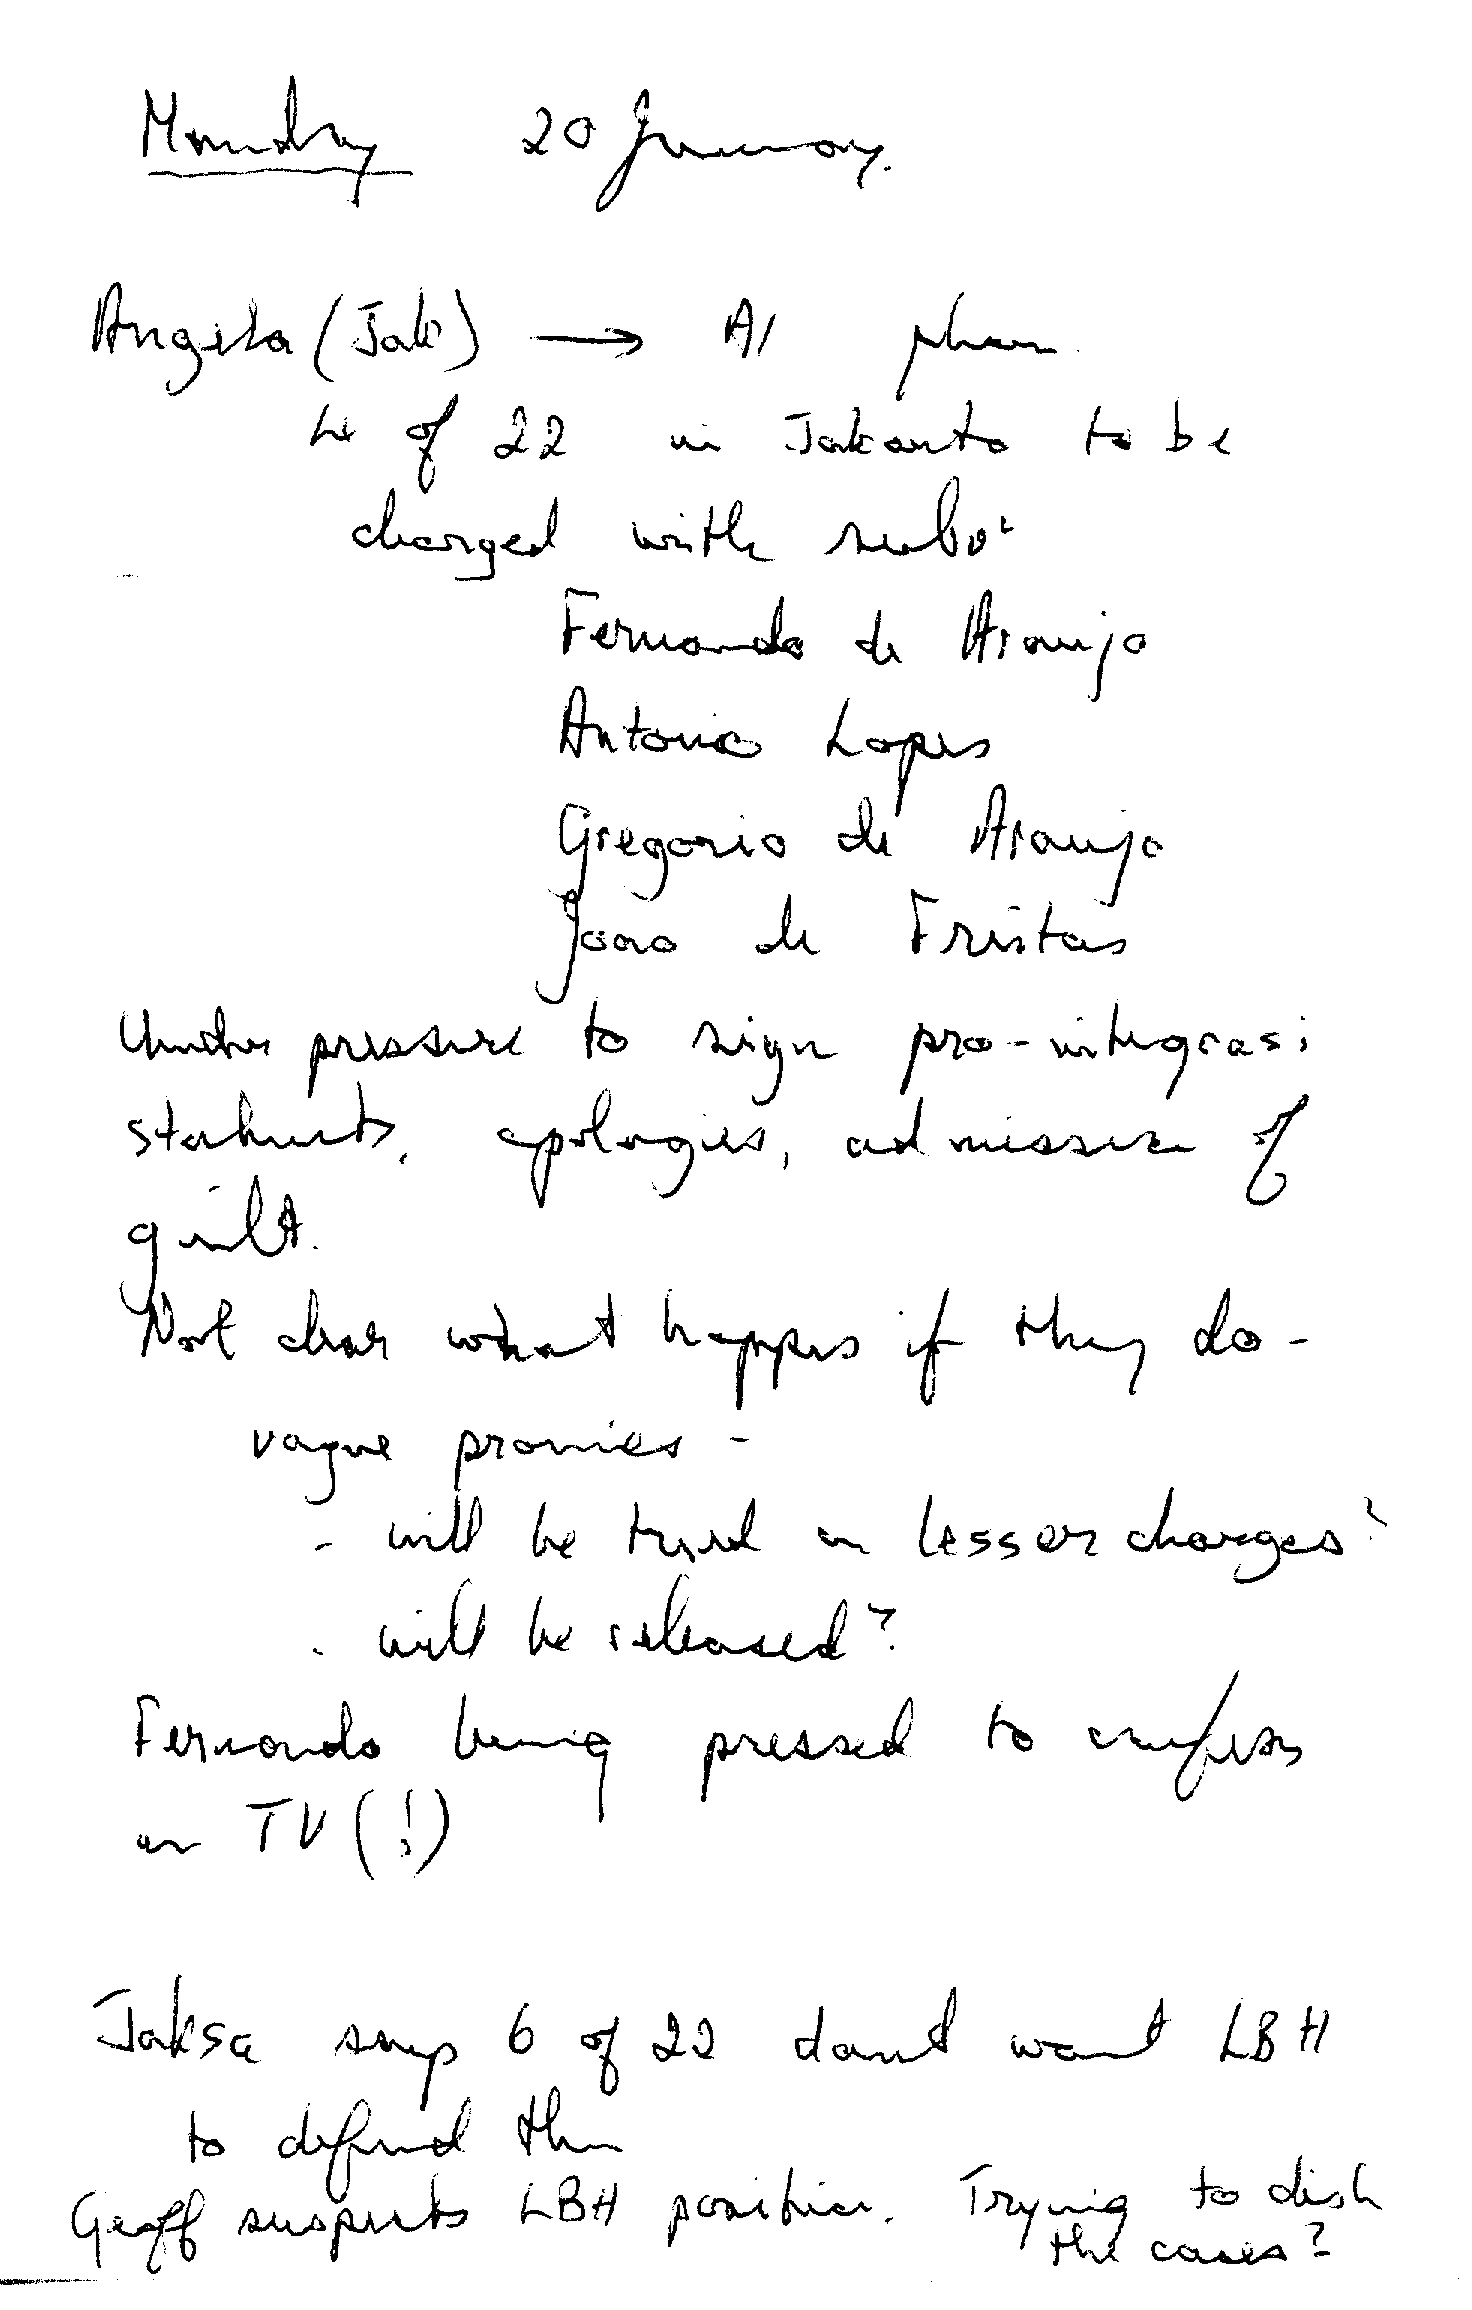 Monday 20 January.
Angela (Jak) → AI phone
4 of 22 in Jakarta to be
charged with subv:
Fernando de Araujo
Antonio Lopes
Gregorio de Araujo
Joao de Freitas
Under pressure to sign pro-integrasi
statements, apologies, admission of
guilt.
Not clear what happens if they do -
vague promises -
- will be tried on lesser charges?
- will be released?
Fernando being pressed to confess
on TV (!)
Jaksa says 6 of 22 don't want LBH
to defend them
Geoff suspects LBH position. Trying to dish
the cases?